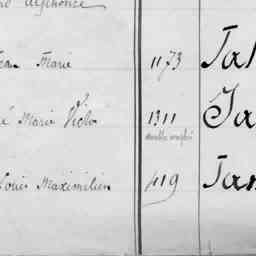 Alphonse
Jean Marie 1173 Tal
é Marie Victor 1311 Ja
Louis Maximilien 419 Tan